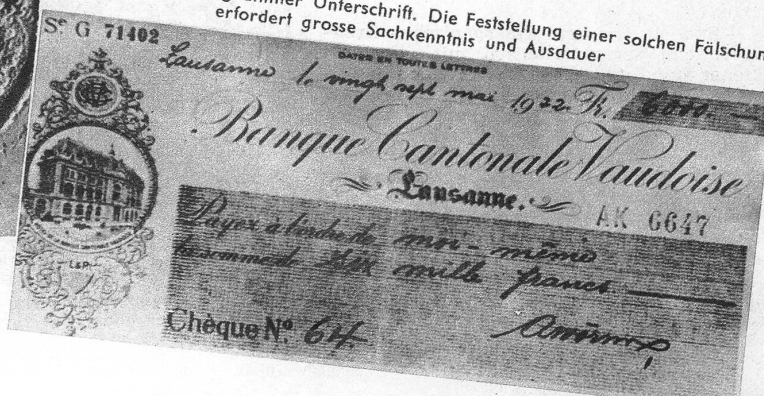 Unterschrift. Die Feststellung einer solchen Fälschun
erfordert grosse Sachkenntnis und Ausdauer
Sie G 71402
DATER EN TOUTES LETTRES
Lausanne le vingt sept mai 1922. Fr. 6000.—
Banque Cantonale Vaudoise
Lausanne.
AK 6647
Payez à l'ordre de moi-même
la somme de six mille francs
Chèque No. 64